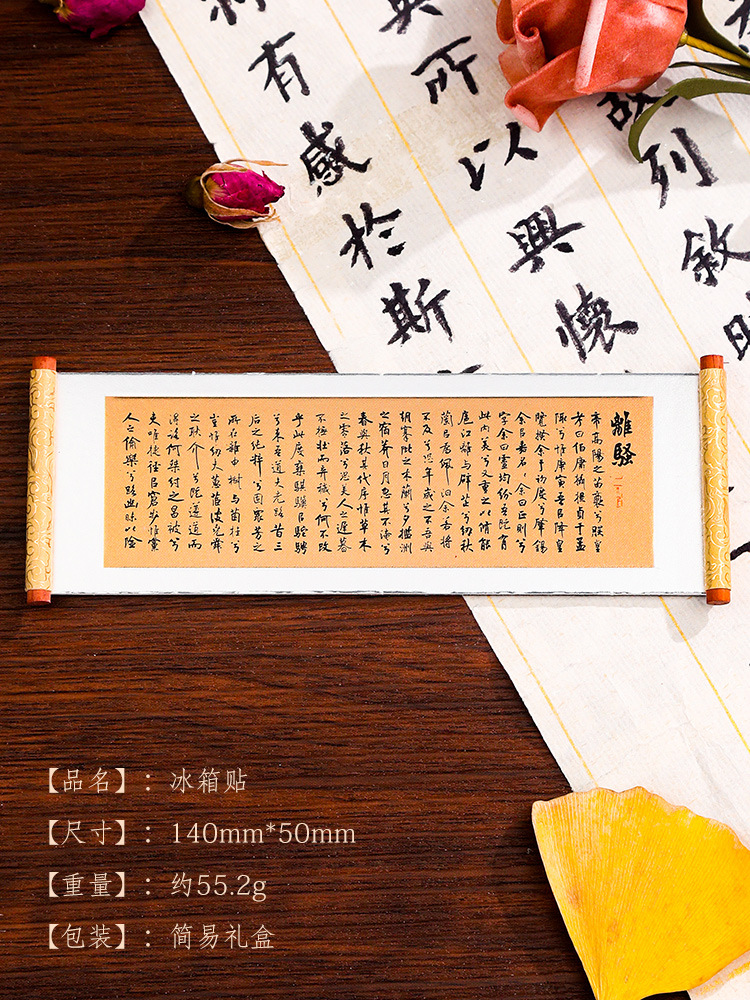 故列敘時
所以興懷
有感於斯
離騷
帝高陽之苗裔兮朕皇
考曰伯庸攝提貞于孟
陬兮惟庚寅吾㠯降皇
覽揆余于初度兮肇錫
余㠯嘉名余曰正則兮
字余曰靈均紛吾既有
此內美兮又重之以脩能
扈江離與辟芷兮紉秋
蘭㠯為佩汩余若將
不及兮恐年歲之不吾與
朝搴阰之木蘭兮夕攬洲
之宿莽日月忽其不淹兮
春與秋其代序惟草木
之零落兮恐美人之遲暮
不撫壯而棄穢兮何不改
乎此度乘騏驥㠯馳騁
兮來吾道夫先路昔三
后之純粹兮固眾芳之
所在雜申椒與菌桂兮
豈惟紉夫蕙茝彼堯舜
之耿介兮既遵道而
得路何桀紂之昌被兮
夫唯捷徑㠯窘步惟黨
人之偷樂兮路幽昧以險
【品名】：冰箱贴
【尺寸】：140mm*50mm
【重量】：约55.2g
【包装】：简易礼盒